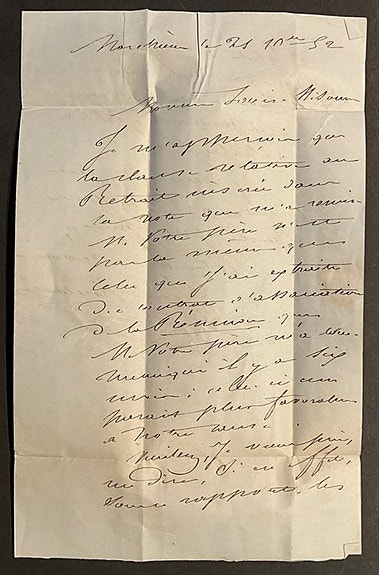 le 21 10bre 52
Monsieur Louis
Je m'apperçois que
la clause relative au
Retrait insérée dans
la note que m'a remis
M. Votre père n'est
pas la même que
celle que j'ai extraite
du contrat d'association
de la Réunion que
M. Votre père m'a
il y a six
mois; celle-ci me
parait plus favorable
à notre cause.
Veuillez, je vous prie,
me dire, si en effet,
sous rapport, les